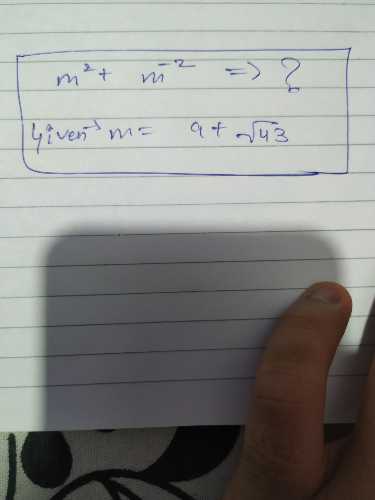 m² + m⁻² => ?
Given → m = 9 + √43